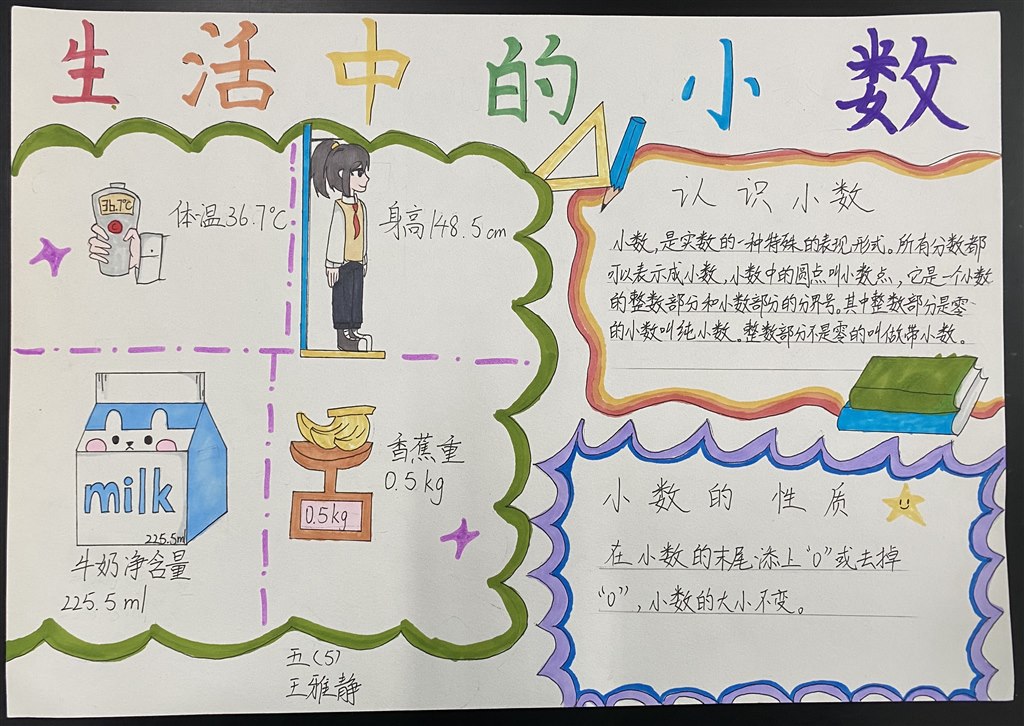 生活中的小数
36.7℃
体温36.7℃
身高148.5cm
milk
225.5ml
牛奶净含量
225.5ml
0.5kg
香蕉重
0.5kg
认识小数
小数，是实数的一种特殊的表现形式。所有分数都
可以表示成小数，小数中的圆点叫小数点，它是一个小数
的整数部分和小数部分的分界号。其中整数部分是零
的小数叫纯小数。整数部分不是零的叫做带小数。
小数的性质
在小数的末尾添上“0”或去掉
“0”，小数的大小不变。
五(5)
王雅静